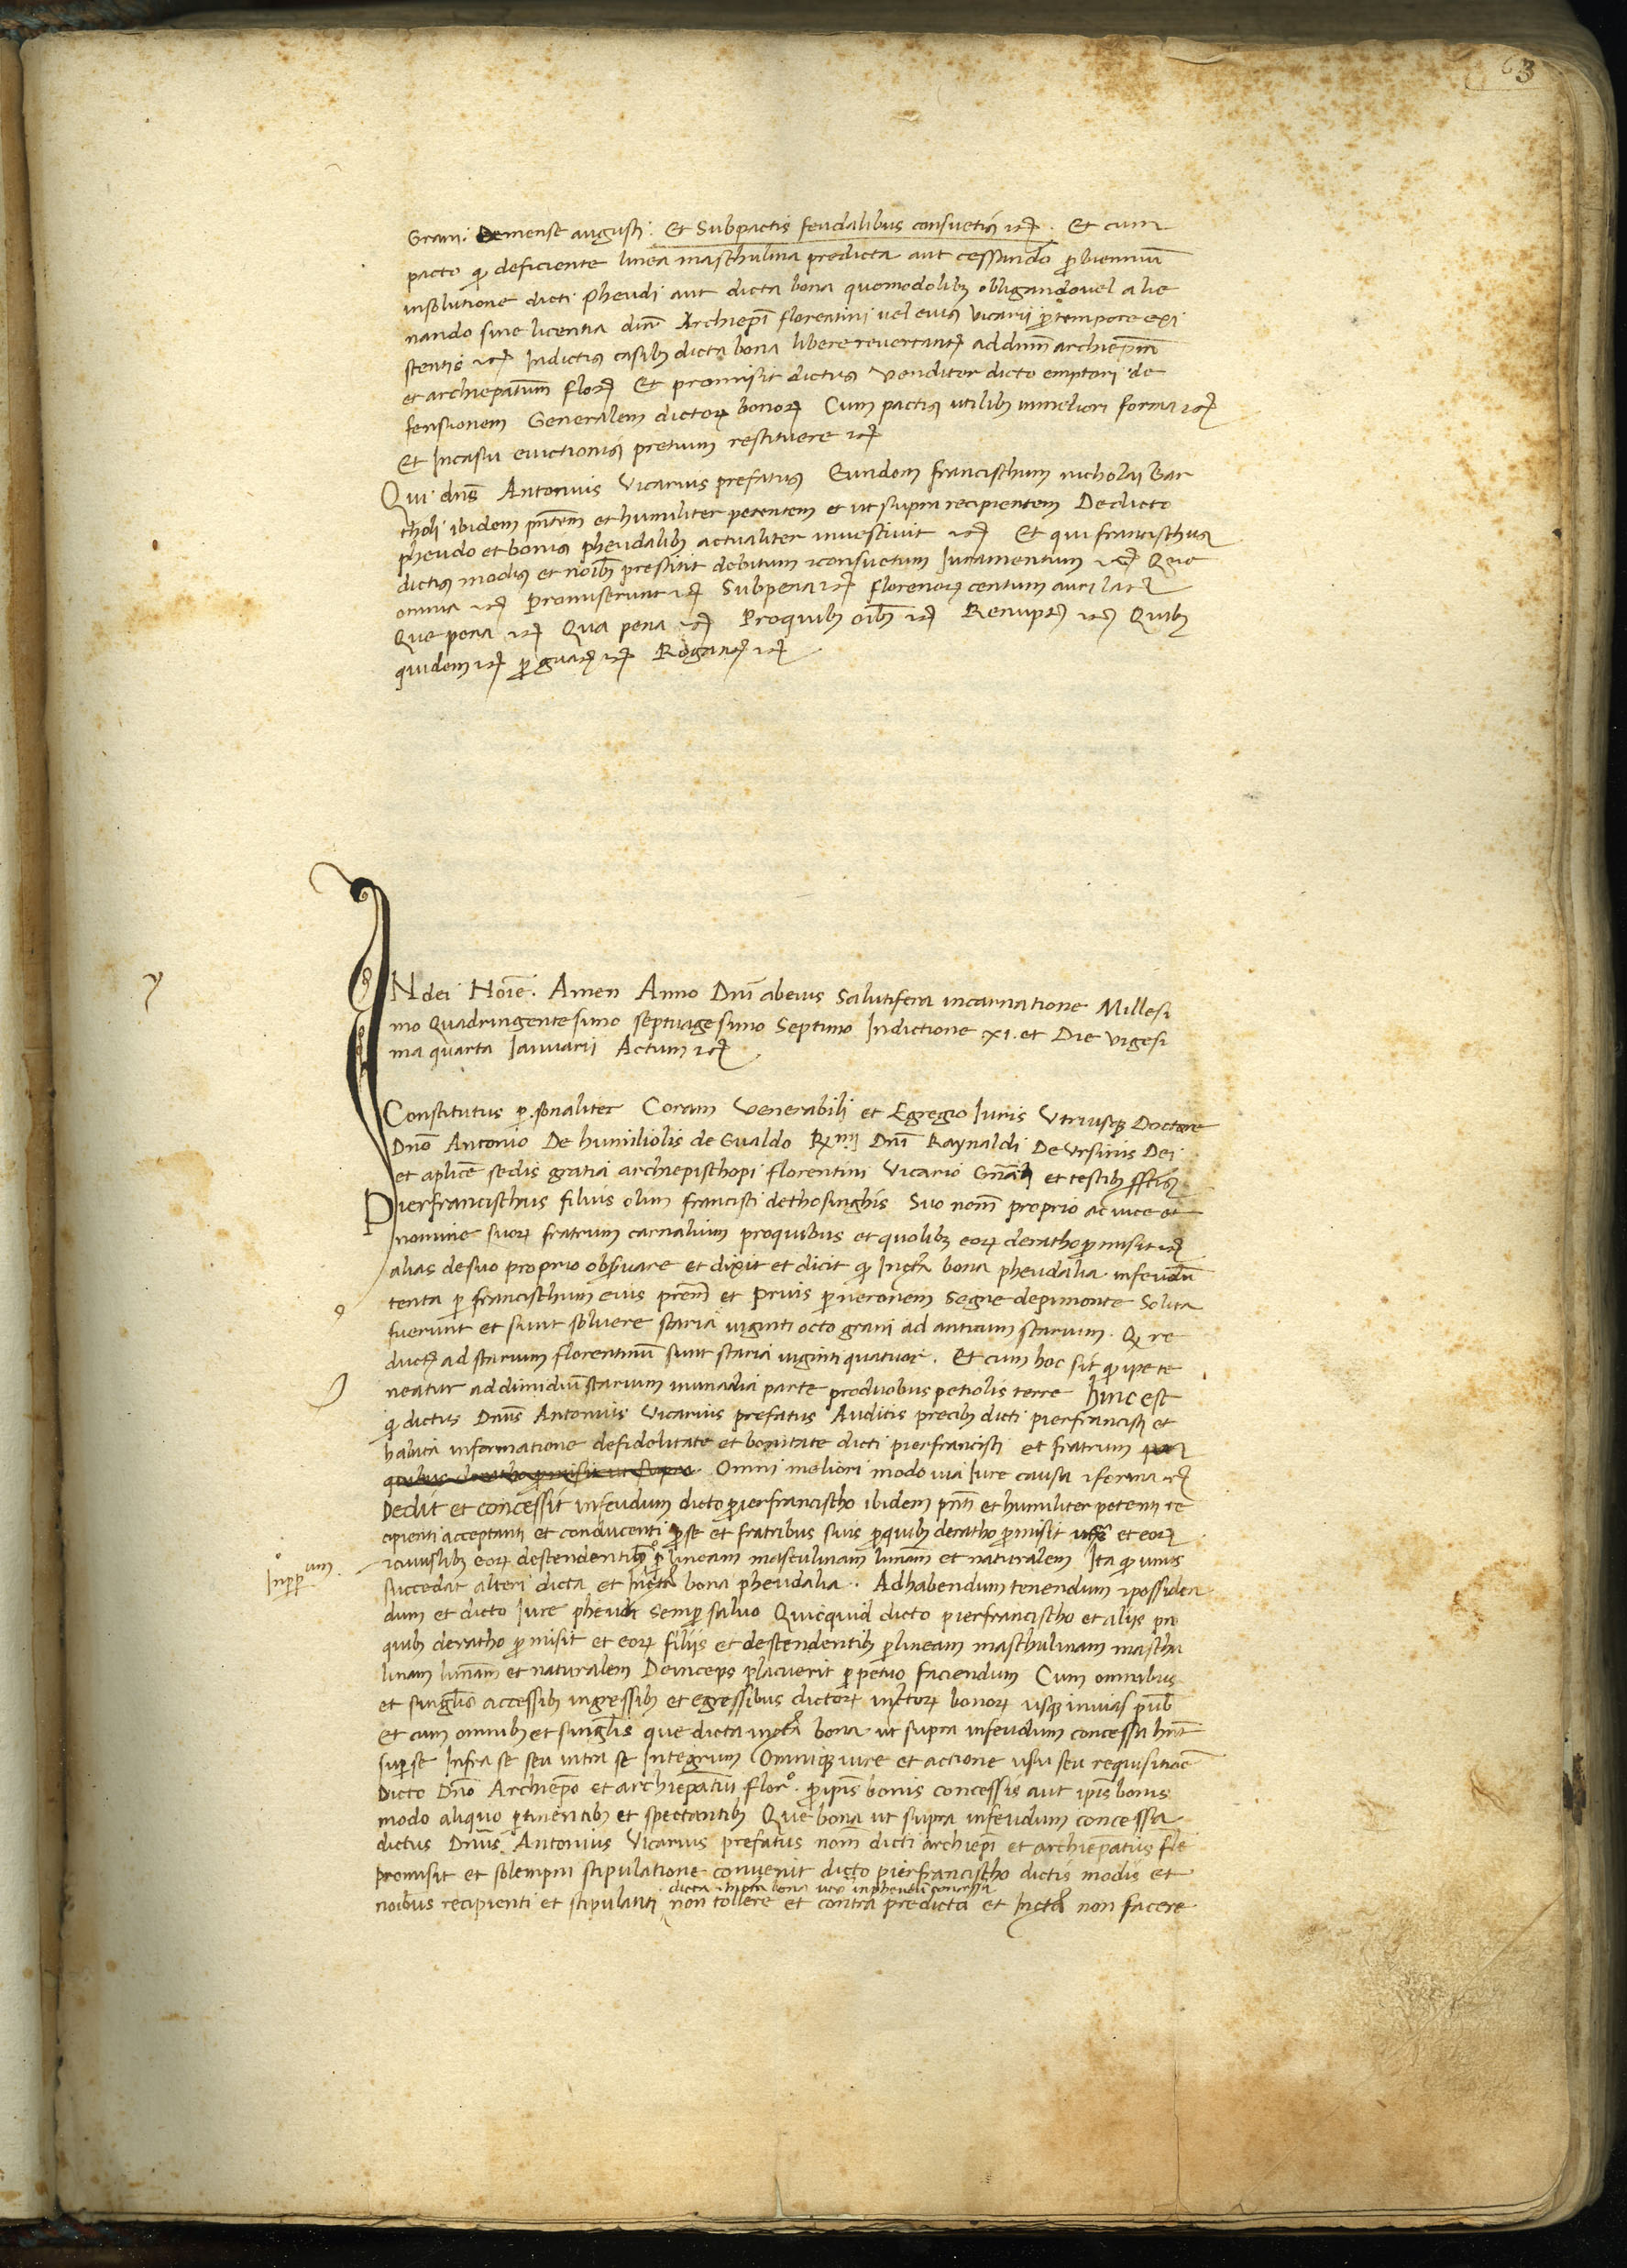 63
Grani. De mense augusti. Et Subpactis feudalibus consuetis etc. Et cum
pacto q̃ deficiente linea maschulina predicta aut cessando p̱ biennium
insolutione dicti pheudi aut dicta bona quomodolibꝫ obligando vel alie
nando sine licentia dñi Archiepĩ florentini vel eius vicarii p̱ tempore exi
stentis etc Indictis casibꝫ dicta bona libere revertant᷑ ad dnm̃ archiepm̃
et archiepatum̃ flor᷑ Et promisit dictus venditor dicto emptori de
fensionem Generalem dictoꝝ bonoꝝ Cum pactis utilibꝫ in meliori forma etc
Et Incasu evictionis pretium restituere etc
Qui dñs Antonius Vicarius prefatus Eundem francischum nicholai Bar
tholi ibidem pñtem et humiliter petentem et ut supra recipientem De dicto
pheudo et bonis pheudalibꝫ actualiter investivit etc Et qui francischus
dictis modis et noĩbꝫ prestitit debitum et consuetum Iuramentum etc Que
omnia etc Promiserunt etc Subpena etc florenoꝝ centum auri lar
Que pena etc Qua pena etc Proquibꝫ oĩbꝫ etc Renunpt᷑ etc Quibꝫ
quidem etc p̱ guar᷑ etc Rogan᷑ etc
IN dei Noĩe. Amen Anno Dnĩ abeius Salutifera incarnatione Millesi
mo Quadringentesimo septuagesimo Septimo Indictione .XI. et Die vigesi
ma quarta Ianuarii Actum etc
Constitutus p̱sonaliter Coram Venerabili et Egregio Iuris Utriusqꝫ Doctore
Dnõ Antonio De humiliolis de Gualdo R.mi Dnĩ Raynaldi De Ursinis Dei
et aplicẽ sedis gratia archiepischopi florentini Vicario Gñali et testibꝫ
Pierfrancischus filius olim francisci dethosinghis Suo nom̃ proprio ac vice et
nomine suoꝝ fratrum carnalium proquibus et quolibꝫ eoꝝ deratho p̱misit etc
alias desuo proprio obs̃vare et dixit et dicit q̃ Infrã bona pheudalia infeudũ
tenta p̱ francischum eius prem̃ et prius p̱ neronem Segne depimonte Solita
fuerunt et sunt solvere staria viginti octo grani ad anticum starium. Q re
duct᷑ ad starium florentinũ sunt staria viginti quatuor. Et cum hoc sit q̃ ipe te
neatur ad dimidiũ starium in una dia parte produobus petiolis terre hinc est
q̃ dictus Dnũs Antonius Vicarius prefatus Auditis precibꝫ dicti pierfrancisci et
habita informatione defidelitate et bonitate dicti pierfrancisci et fratrum pro
quibus deratho p̱misit ut supra. Omni meliori modo via Iure causa et forma etc
Dedit et concessit infeudum dicto pierfrancischo ibidem pñti et humiliter petenti re
cipienti acceptanti et conducenti p̱ se et fratribus suis p̱quibꝫ deratho p̱misit et eoꝝ
et cuiuslibꝫ eoꝝ descendentibꝫ p̱ lineam masculinam et naturalem Ita q̃ unus
Inp̱p̱um.
succedat alteri dicta et Infrã bona pheudalia. Adhabendum tenendum et possiden
dum et dicto Iure pheudi semp̱ salvo Quicquid dicto pierfrancischo et aliis pro
quibꝫ deratho p̱misit et eoꝝ filiis et descendentibꝫ p̱ lineam maschulinam maschu
linam et naturalem Deinceps placuerit p̱petuo faciendum Cum omnibus
et singulis accessibꝫ ingressibꝫ et egressibus dictoꝝ infrõꝝ bonoꝝ usqꝫ in vias publ̃
et cum omnibꝫ et singulis que dicta infrã bona ut supra infeudum concessa hnt̃
sup̱ se Infra se seu intra se Integrum Omniqꝫ iure et actione usu seu requisitionẽ
Dicto Dnõ Archiepõ et archiepatui flor.º p̱ ipĩs bonis concessis aut ipĩs bonis
modo aliquo p̱tinentibꝫ et spectantibꝫ Que bona ut supra infeudum concessa
dictus Dnũs Antonius Vicarius prefatus nom̃ dicti archiepĩ et archiepatus flẽ
promisit et solempni stipulatione convenit dicto pierfrancischo dictis modis et
dicta infrã bona ut s̃ inpheudũ concessa
noĩbus recipienti et stipulanti non tollere et contra predicta et Infrã non facere